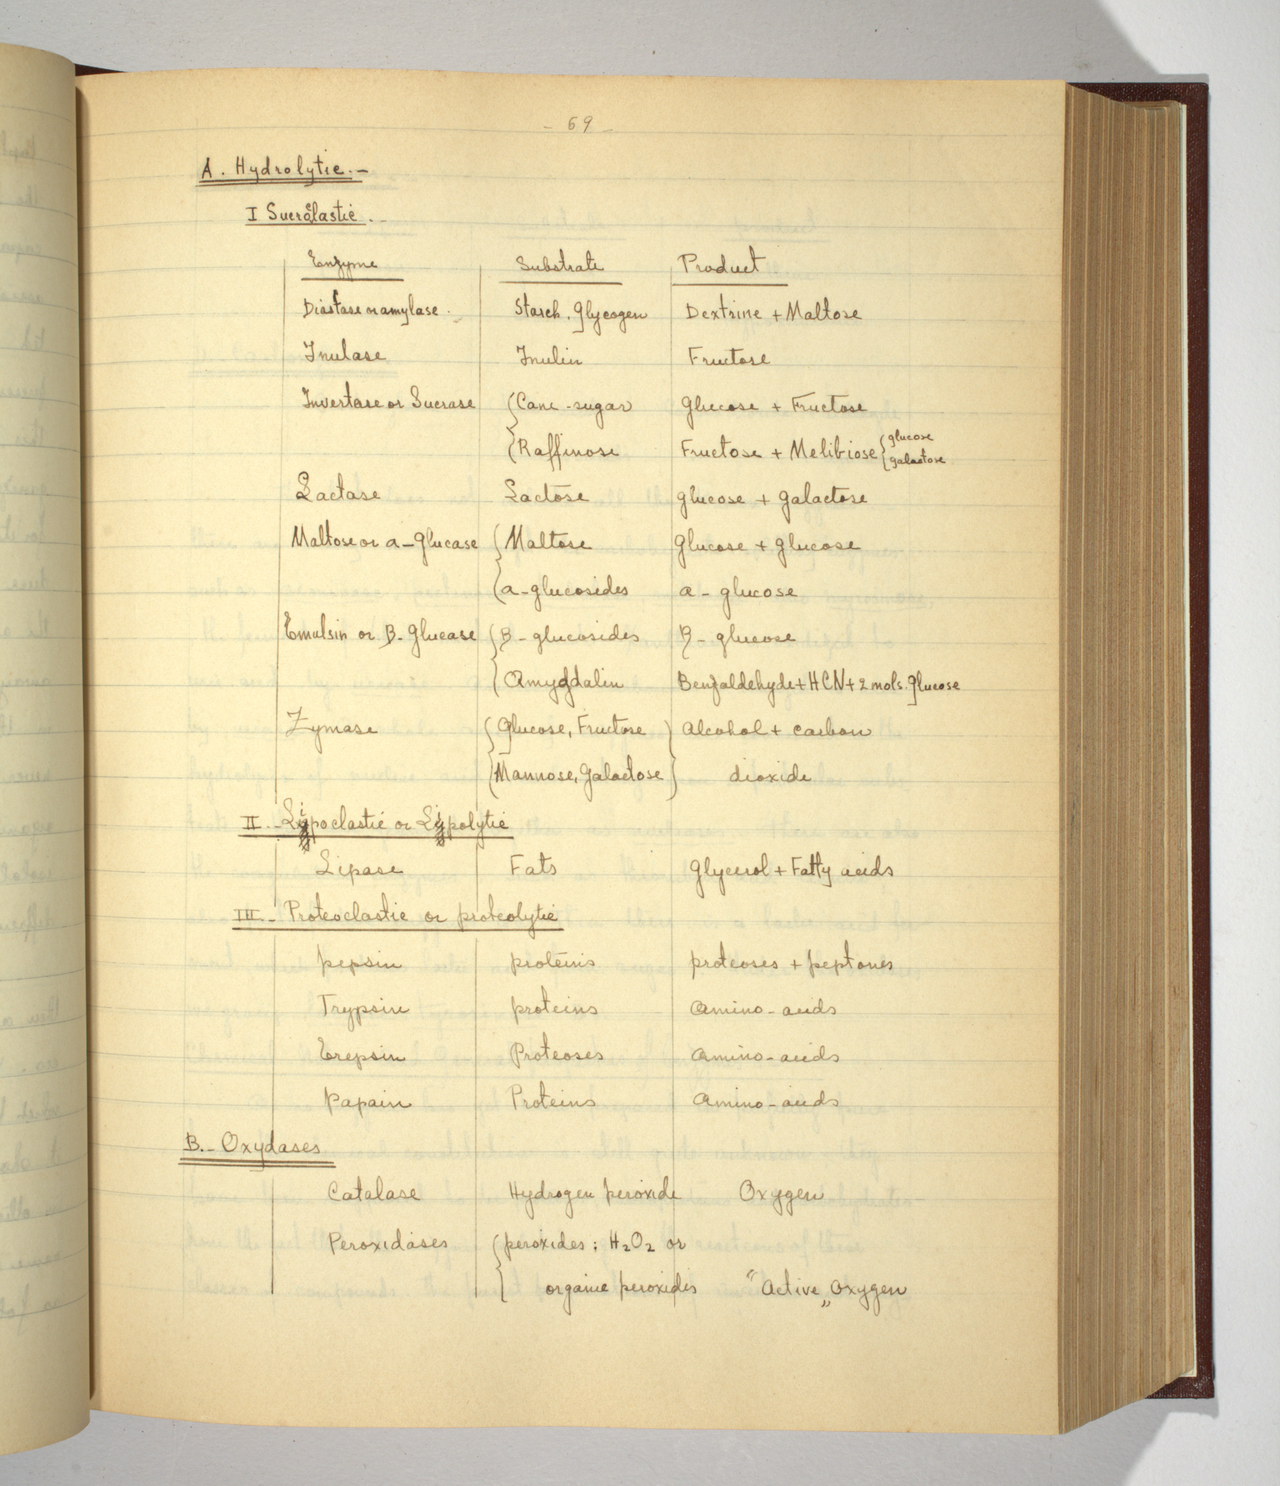 - 69 -
A. Hydrolytic.-
I Sucroclastic.
Enzyme Substrate Product
Diastase or amylase. Starch. Glycogen Dextrine + Maltose
Inulase Inulin Fructose
Invertase or Sucrase { Cane-sugar Glucose + Fructose
{ Raffinose Fructose + Melibiose { glucose
galactose
Lactase Lactose glucose + galactose
Maltose or a-Glucase { Maltose Glucose + glucose
{ a-glucosides a-glucose
Emulsin or B-Glucase { B-glucosides B-glucose
{ Amygdalin Benzaldehyde + HCN + 2 mols. Glucose
Zymase { Glucose, Fructose } Alcohol + carbon
{ Mannose, Galactose } dioxide
II.- Lipoclastic or Lipolytic
Lipase Fats Glycerol + Fatty acids
III.- Proteoclastic or proteolytic
pepsin proteins proteoses + peptones
Trypsin proteins Amino-acids
Erepsin Proteoses Amino-acids
Papain Proteins Amino-acids
B.- Oxydases
Catalase Hydrogen peroxide Oxygen
Peroxidases { peroxides; H₂O₂ or
organic peroxides "Active„ oxygen